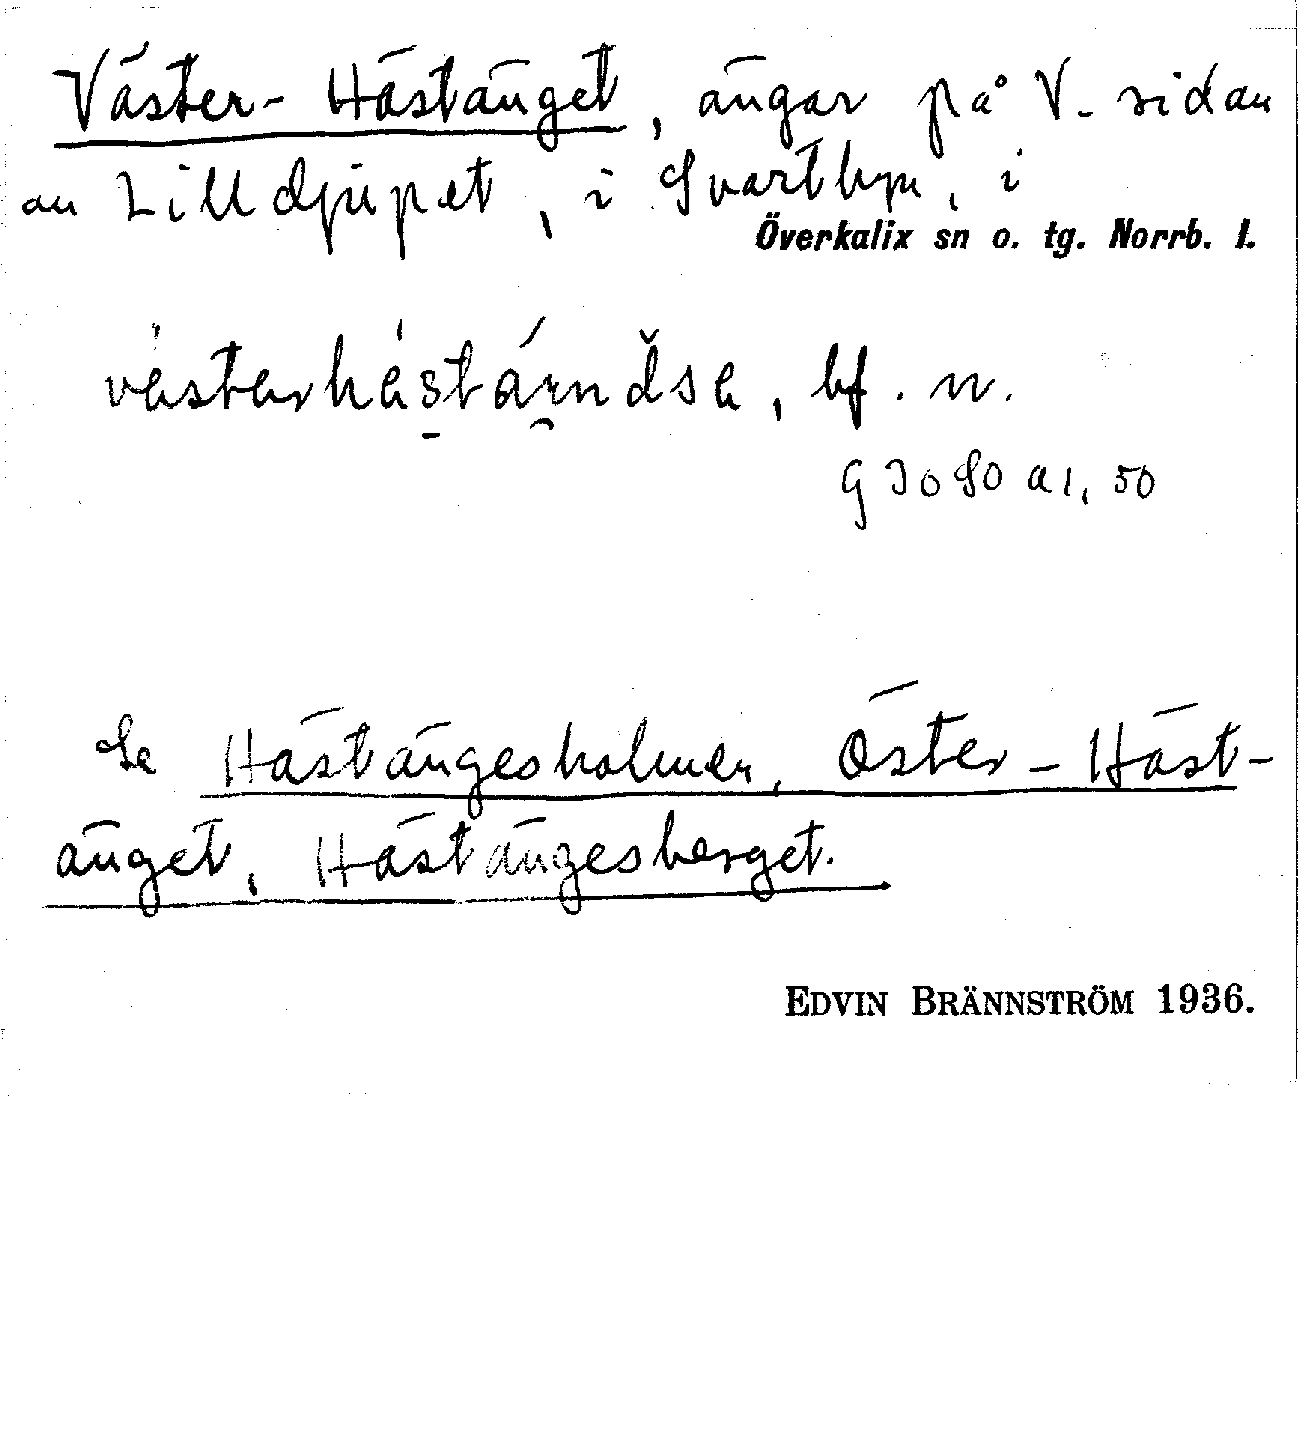 Väster-Hästänget, ängar på V-sidan
av Lilldjupet, i Svartbyn, i
Överkalix sn o. tg. Norrb. l.
bf. n.
G 3080 a 1, 50
Se Hästängesholmen, Öster-Häst-
änget, Hästängesberget.
EDVIN BRÄNNSTRÖM 1936.